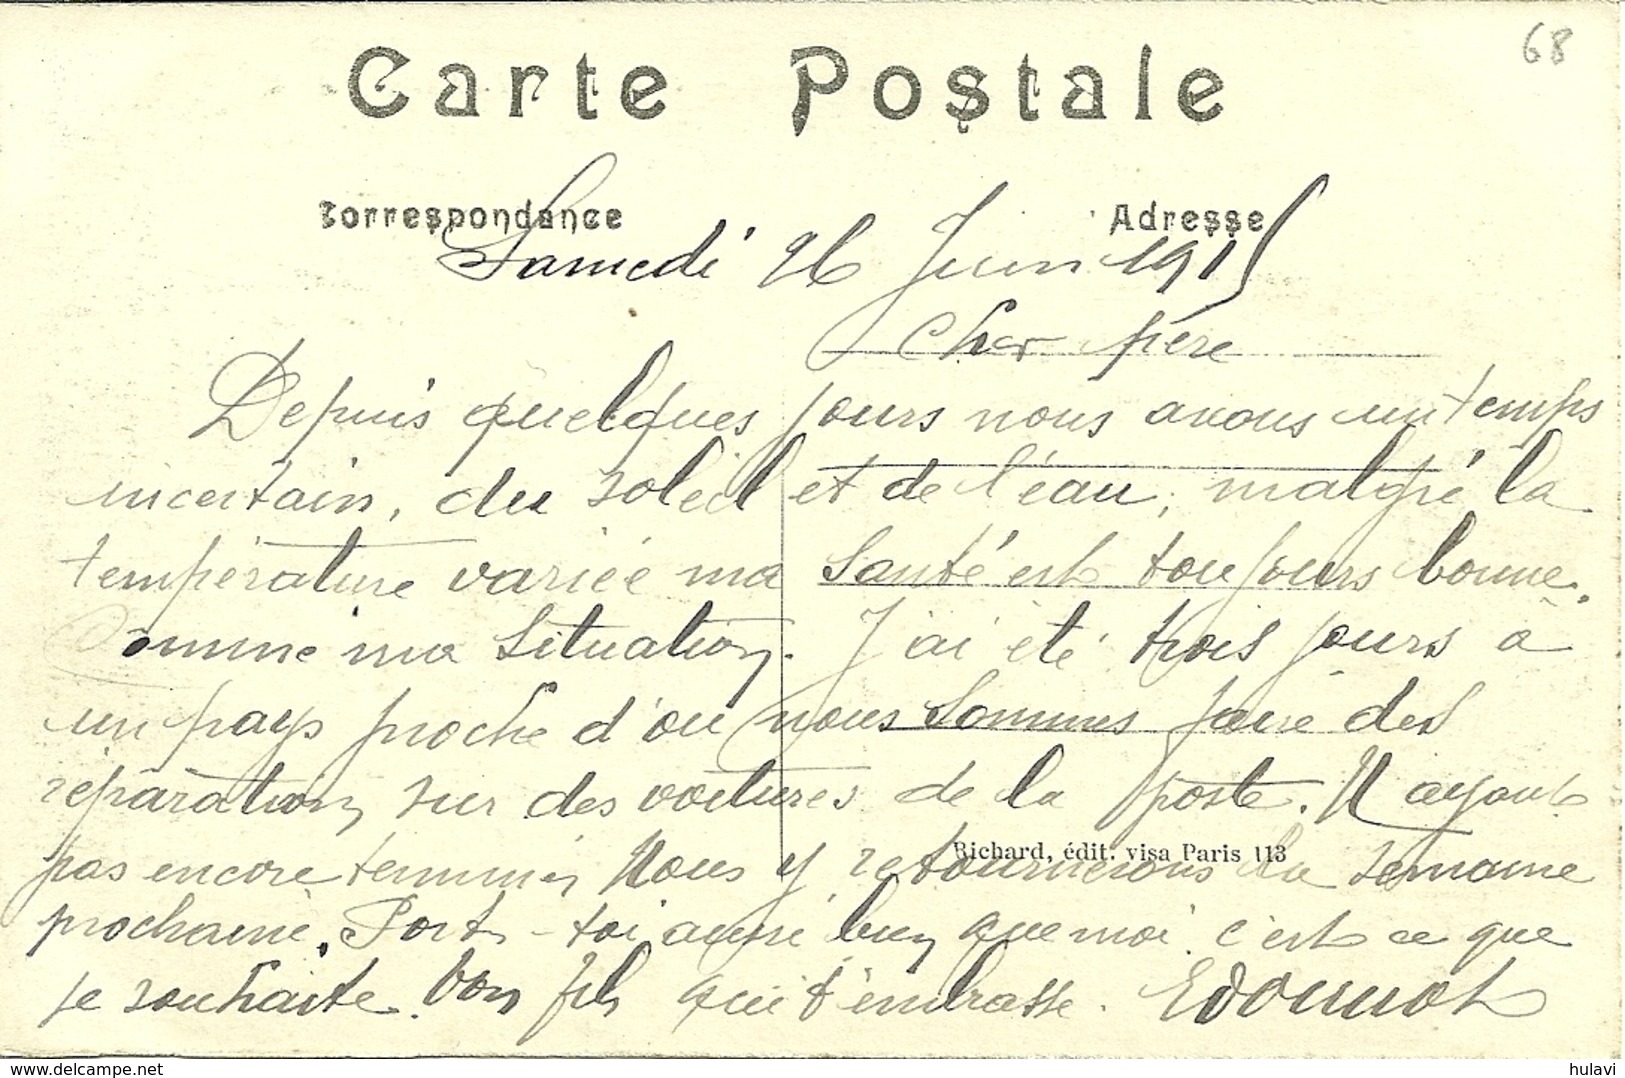 68
Carte Postale
Correspondance
Adresse
Samedi 26 Juin 1915
Cher père
Depuis quelques jours nous avons un temps
incertain, du soleil et de l'eau, malgré la
température variée ma santé est toujours bonne.
Comme ma situation. J'ai été trois jours à
un pays proche d'où nous sommes faire des
réparation sur des voitures de la poste. N'ayant
pas encore terminer Nous y retournerons la semaine
Richard, édit. visa Paris 113
prochaine. Porte-toi aussi bien que moi c'est ce que
je souhaite. Ton fils qui t'embrasse.
delcampe.net
hulavi